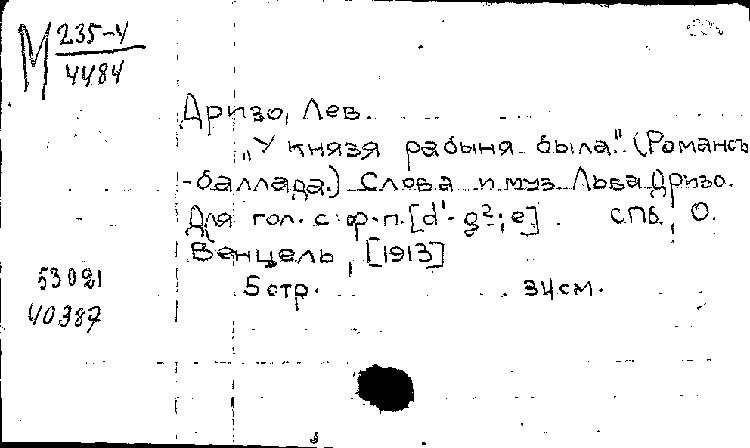 М 235-4
4484
Дризо, Лев.
„У князя рабыня была". (Романсъ
-баллада.) Слова и муз. Льва Дризо.
Для гол. с ф.п. [d¹-g²; e]. СПб., О.
Венцель, [1913]
53021
5 стр. 34 см.
40387